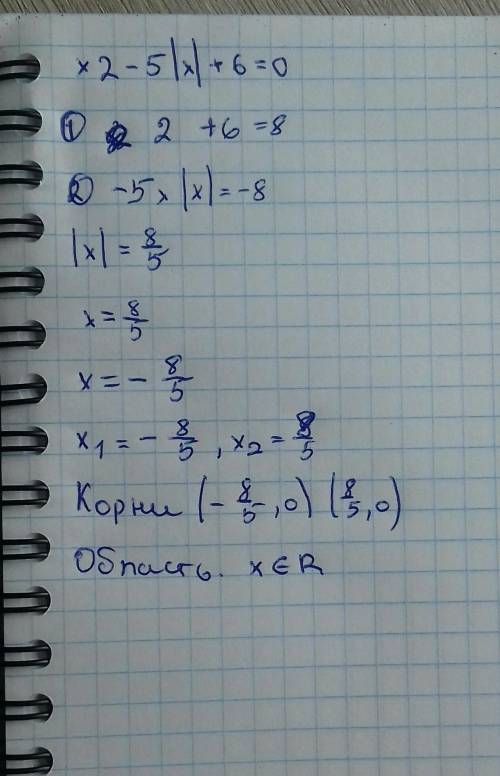 x2-5|x|+6=0
① 2 +6=8
② -5x|x|=-8
|x|=8/5
x=8/5
x=-8/5
x₁=-8/5, x₂=8/5
Корни (-8/5,0) (8/5,0)
Область. x∈R